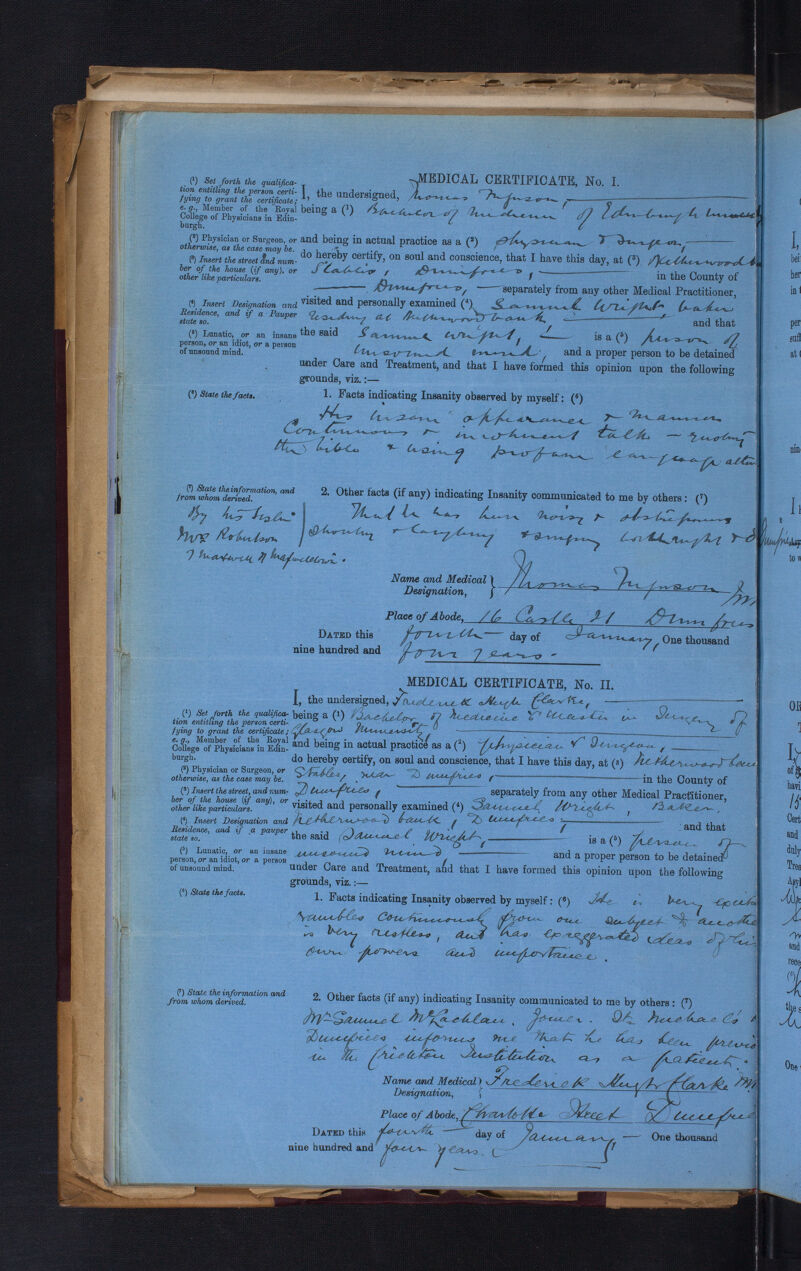 MEDICAL CERTIFICATE, No. I.
(1) Set forth the qualifica-
tion entitling the person certi-
fying to grant the certificate;
e.g., Member of the Royal
College of Physicians in Edin-
burgh.
I, the undersigned, Thomas
being a (1) Bachelor of Medicine of Edinburgh
(2) Physician or Surgeon, or
otherwise, as the case may be.
and being in actual practice as a (2) Physician & Surgeon,
(3) Insert the street and num-
ber of the house (if any), or
other like particulars.
do hereby certify, on soul and conscience, that I have this day, at (3) Netherwood
Stables, Dumfries, in the County of
Dumfries, separately from any other Medical Practitioner,
(4) Insert Designation and
Residence, and if a Pauper
state so.
visited and personally examined (4) Samuel Wright baker
residing at Netherwood bank, and that
(5) Lunatic, or an insane
person, or an idiot, or a person
of unsound mind.
the said Samuel Wright, is a (5) person of
unsound mind, and a proper person to be detained
under Care and Treatment, and that I have formed this opinion upon the following
grounds, viz.:—
(6) State the facts.
1. Facts indicating Insanity observed by myself: (6)
His insane appearance & manner
Continuous & incoherent talk - quoting
the bible & using profane language
(7) State the information, and
from whom derived.
2. Other facts (if any) indicating Insanity communicated to me by others: (7)
By his sister
Mrs Robertson
7 Maxwell St Maxwelltown.
That he has been noisy & obstreperous
Shouting & laughing & singing
Name and Medical
Designation,
Thomas
Place of Abode, 16 Castle St Dumfries
DATED this fourth day of January, One thousand
nine hundred and four years.
MEDICAL CERTIFICATE, No. II.
I, the undersigned, Frederick Hugh Clarke,
(1) Set forth the qualifica-
tion entitling the person certi-
fying to grant the certificate;
e.g., Member of the Royal
College of Physicians in Edin-
burgh.
being a (1) Bachelor of Medicine & Master in Surgery of
Glasgow University
and being in actual practice as a (2) Physician & Surgeon,
(2) Physician or Surgeon, or
otherwise, as the case may be.
do hereby certify, on soul and conscience, that I have this day, at (3) Netherwood bank
Stables, near Dumfries, in the County of
(3) Insert the street, and num-
ber of the house (if any), or
other like particulars.
Dumfries, separately from any other Medical Practitioner,
visited and personally examined (4) Samuel Wright, Baker,
(4) Insert Designation and
Residence, and if a pauper
state so.
Netherwood bank, Dumfries, and that
the said Samuel Wright, is a (5) person of
(5) Lunatic, or an insane
person, or an idiot, or a person
of unsound mind.
unsound mind and a proper person to be detained
under Care and Treatment, and that I have formed this opinion upon the following
grounds, viz.:—
(6) State the facts.
1. Facts indicating Insanity observed by myself: (6) He is very
rambles continuously from one subject to
is very restless, and has exaggerated ideas of his
own powers and importance.
(7) State the information and
from whom derived.
2. Other facts (if any) indicating Insanity communicated to me by others: (7)
Mr Samuel McLachlan, Joiner, St Michael's
Dumfries informs me that he has been
in the Crichton Institution as a patient.
Name and Medical
Designation,
Frederick Hugh Clarke
Place of Abode, Charlotte Street Dumfries
DATED this fourth day of January, One thousand
nine hundred and four years.